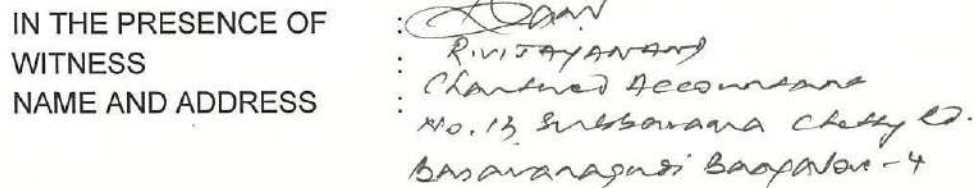 IN THE PRESENCE OF :
WITNESS : R.VIJAYANAND
NAME AND ADDRESS : Chartered Accountant
No. 13 Subbarama Chetty Rd.
Basavanagudi Bangalore - 4